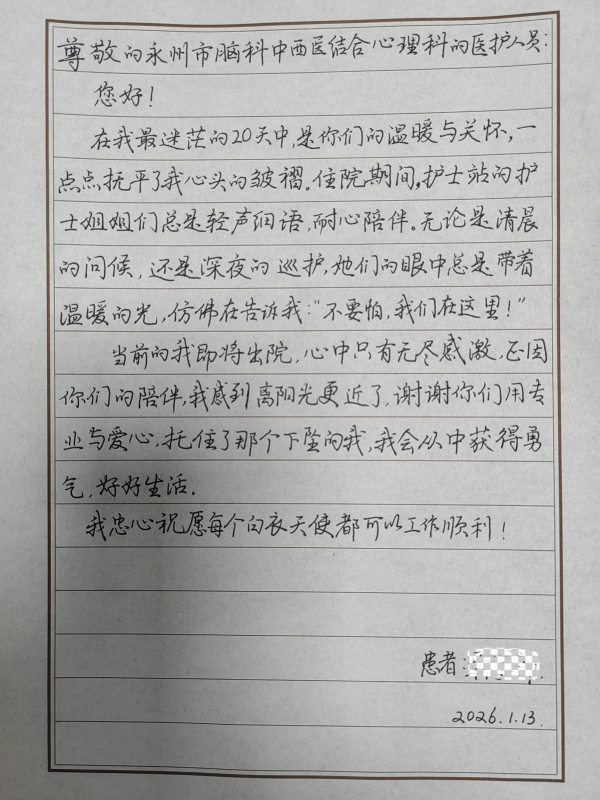 尊敬的永州市脑科中西医结合心理科的医护人员:
您好!
在我最迷茫的20天中,是你们的温暖与关怀,一
点点抚平了我心头的皱褶.住院期间,护士站的护
士姐姐们总是轻声细语,耐心陪伴.无论是清晨
的问候,还是深夜的巡护,她们的眼中总是带着
温暖的光,仿佛在告诉我:"不要怕,我们在这里!"
当前的我即将出院,心中只有无尽感激,正因
你们的陪伴,我感到离阳光更近了,谢谢你们用专
业与爱心,托住了那个下坠的我,我会从中获得勇
气,好好生活.
我忠心祝愿每个白衣天使都可以工作顺利!
患者:
2026.1.13.